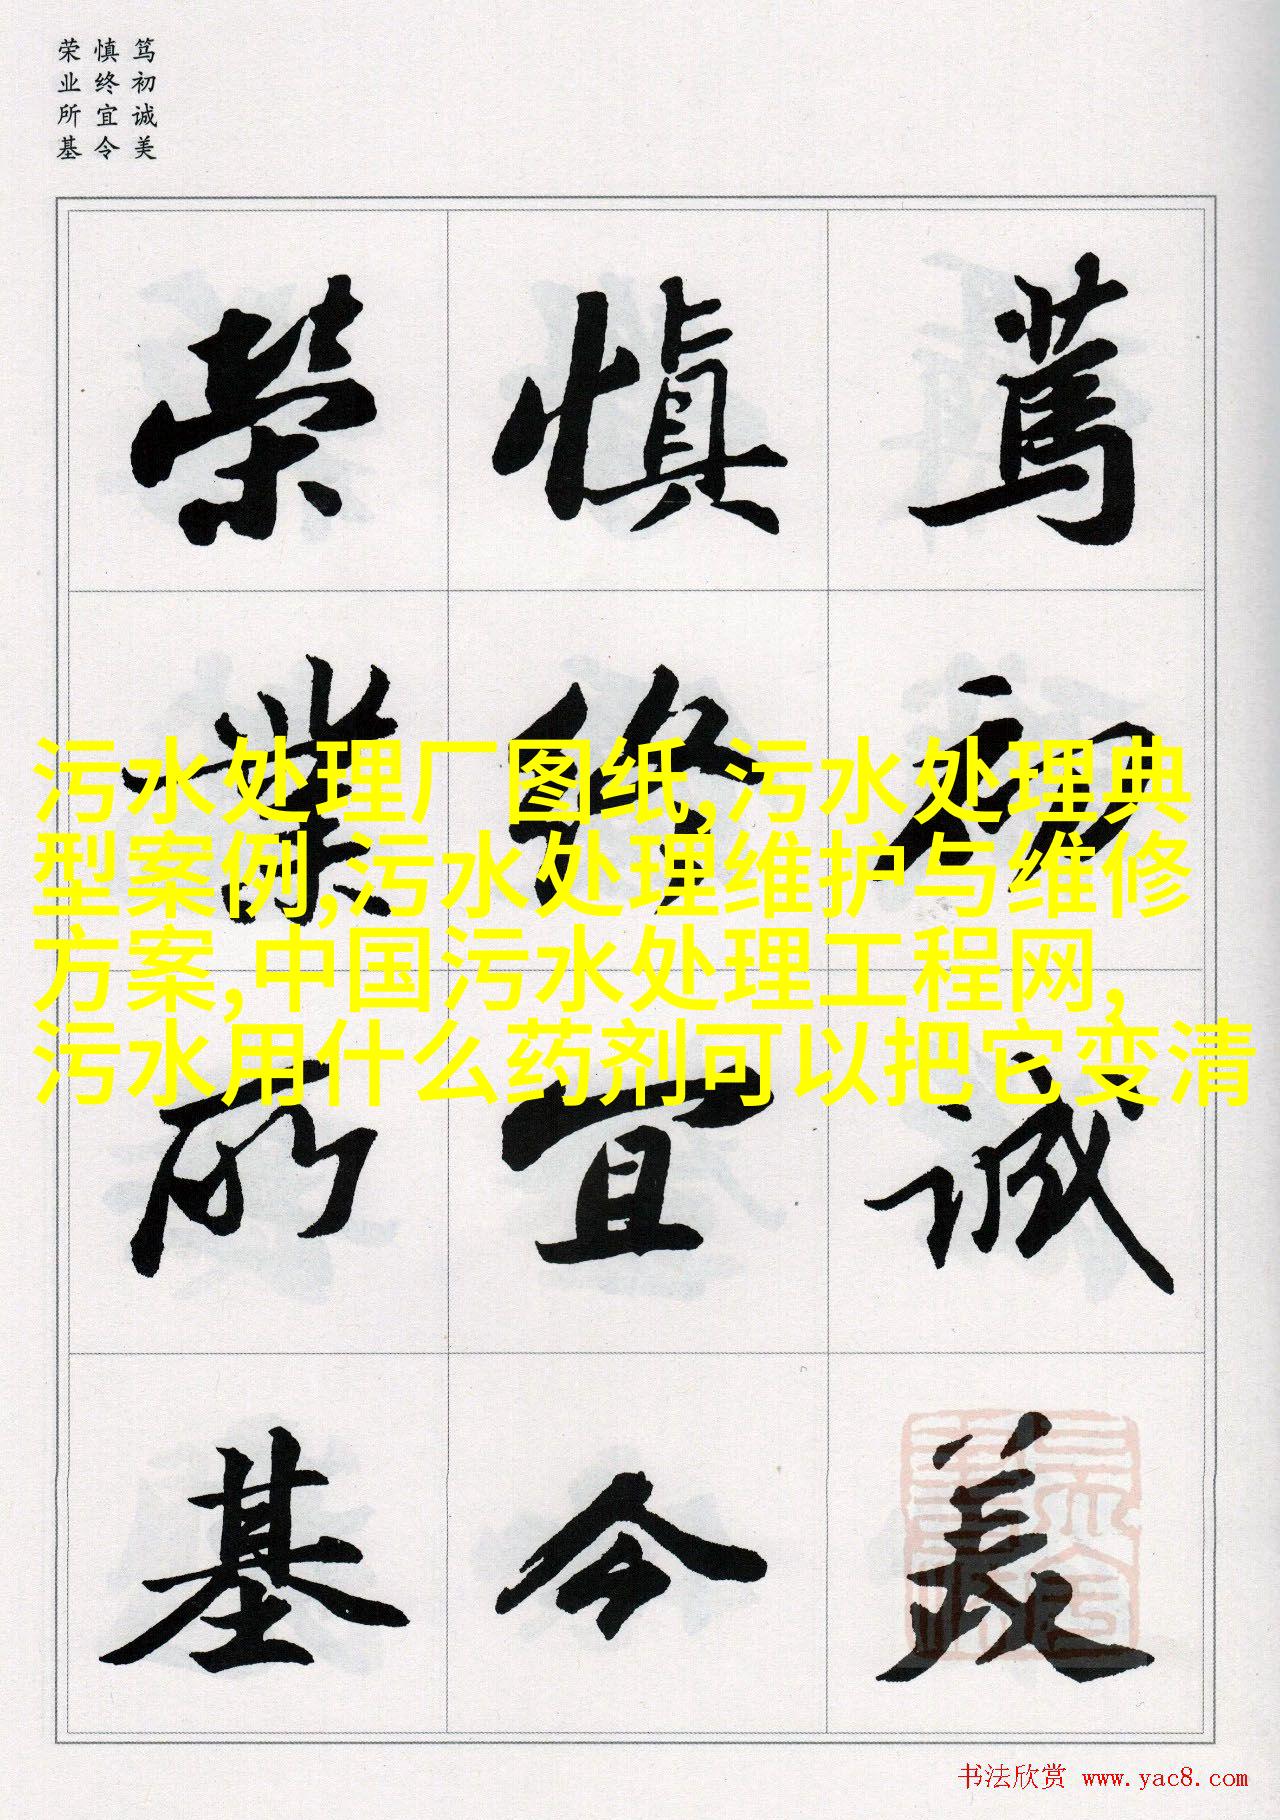 笃初诚美
慎终宜令
荣业所基
篤初誠美
慎終宜令
榮業所基
污水处理厂图纸,污水处理典
型案例,污水处理维护与维修
方案,中国污水处理工程网,
污水用什么药剂可以把它变清
书法欣赏 www.yac8.com